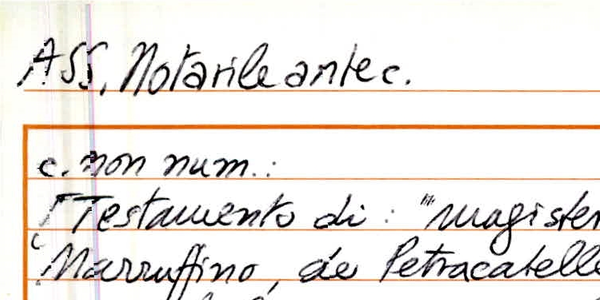 ASS, Notarile antec.
c. non num.:
[Testamento di: "magister
Marruffino, de Petracatelle